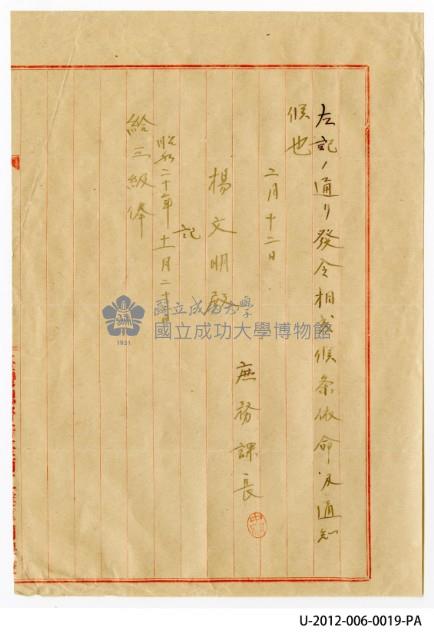 左記ノ通リ發令相成候条依命及通知
候也
二月十二日
庶務課長
楊文明殿
記
昭和二十年十一月二十日
給三級俸
國立成功大學
國立成功大學博物館
1931
U-2012-006-0019-PA